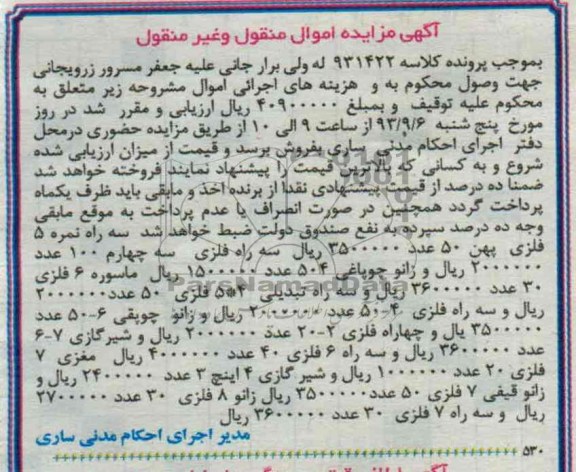 آگهی مزایده اموال منقول وغیر منقول
بموجب پرونده کلاسه ۹۳۱۴۲۲ له ولی برار جانی علیه جعفر مسرور زرویجانی
جهت وصول محکوم به و هزینه های اجرائی اموال مشروحه زیر متعلق به
محکوم علیه توقیف و بمبلغ ۴۰۹۰۰۰۰۰ ریال ارزیابی و مقرر شد در روز
مورخ پنج شنبه ۹۳/۹/۶ از ساعت ۹ الی ۱۰ از طریق مزایده حضوری درمحل
دفتر اجرای احکام مدنی ساری بفروش برسد و قیمت از میزان ارزیابی شده
شروع و به کسانی که بالاترین قیمت را پیشنهاد نمایند فروخته خواهد شد
ضمنا ده درصد از قیمت پیشنهادی نقدا از برنده اخذ و مابقی باید ظرف یکماه
پرداخت گردد همچنین در صورت انصراف یا عدم پرداخت به موقع مابقی
وجه ده درصد سپرده به نفع صندوق دولت ضبط خواهد شد سه راه نمره ۵
فلزی پهن ۵۰ عدد ۳۵۰۰۰۰۰ ریال سه راه فلزی سه چهارم ۱۰۰ عدد
۲۰۰۰۰۰۰ ریال و زانو چوپاغی ۴-۵۰ عدد ۱۵۰۰۰۰۰ ریال ماسوره ۶ فلزی
۳۰ عدد ۳۶۰۰۰۰۰ ریال و سه راه تبدیلی ۴*۵ فلزی ۵۰ عدد ۲۰۰۰۰۰۰
ریال و سه راه فلزی ۴-۵۰ عدد ۲۰۰۰۰۰۰ ریال و زانو چوپقی ۶-۵۰ عدد
۳۵۰۰۰۰۰ یال و چهاراه فلزی ۲-۲۰ عدد ۲۰۰۰۰۰۰ ریال و شیر گازی ۷-۶
عدد ۳۶۰۰۰۰۰ ریال و سه راه ۶ فلزی ۴۰ عدد ۴۰۰۰۰۰۰ ریال مغزی ۷
فلزی ۲۰ عدد ۱۰۰۰۰۰۰ ریال و شیر گازی ۴ اینچ ۳ عدد ۲۴۰۰۰۰۰ ریال و
زانو قیفی ۷ فلزی ۵۰ عدد ۳۵۰۰۰۰۰ ریال زانو ۸ فلزی ۳۰ عدد ۲۷۰۰۰۰۰
ریال و سه راه ۷ فلزی ۳۰ عدد ۳۶۰۰۰۰۰ ریال
مدیر اجرای احکام مدنی ساری
۵۳۰
ParsNamadData